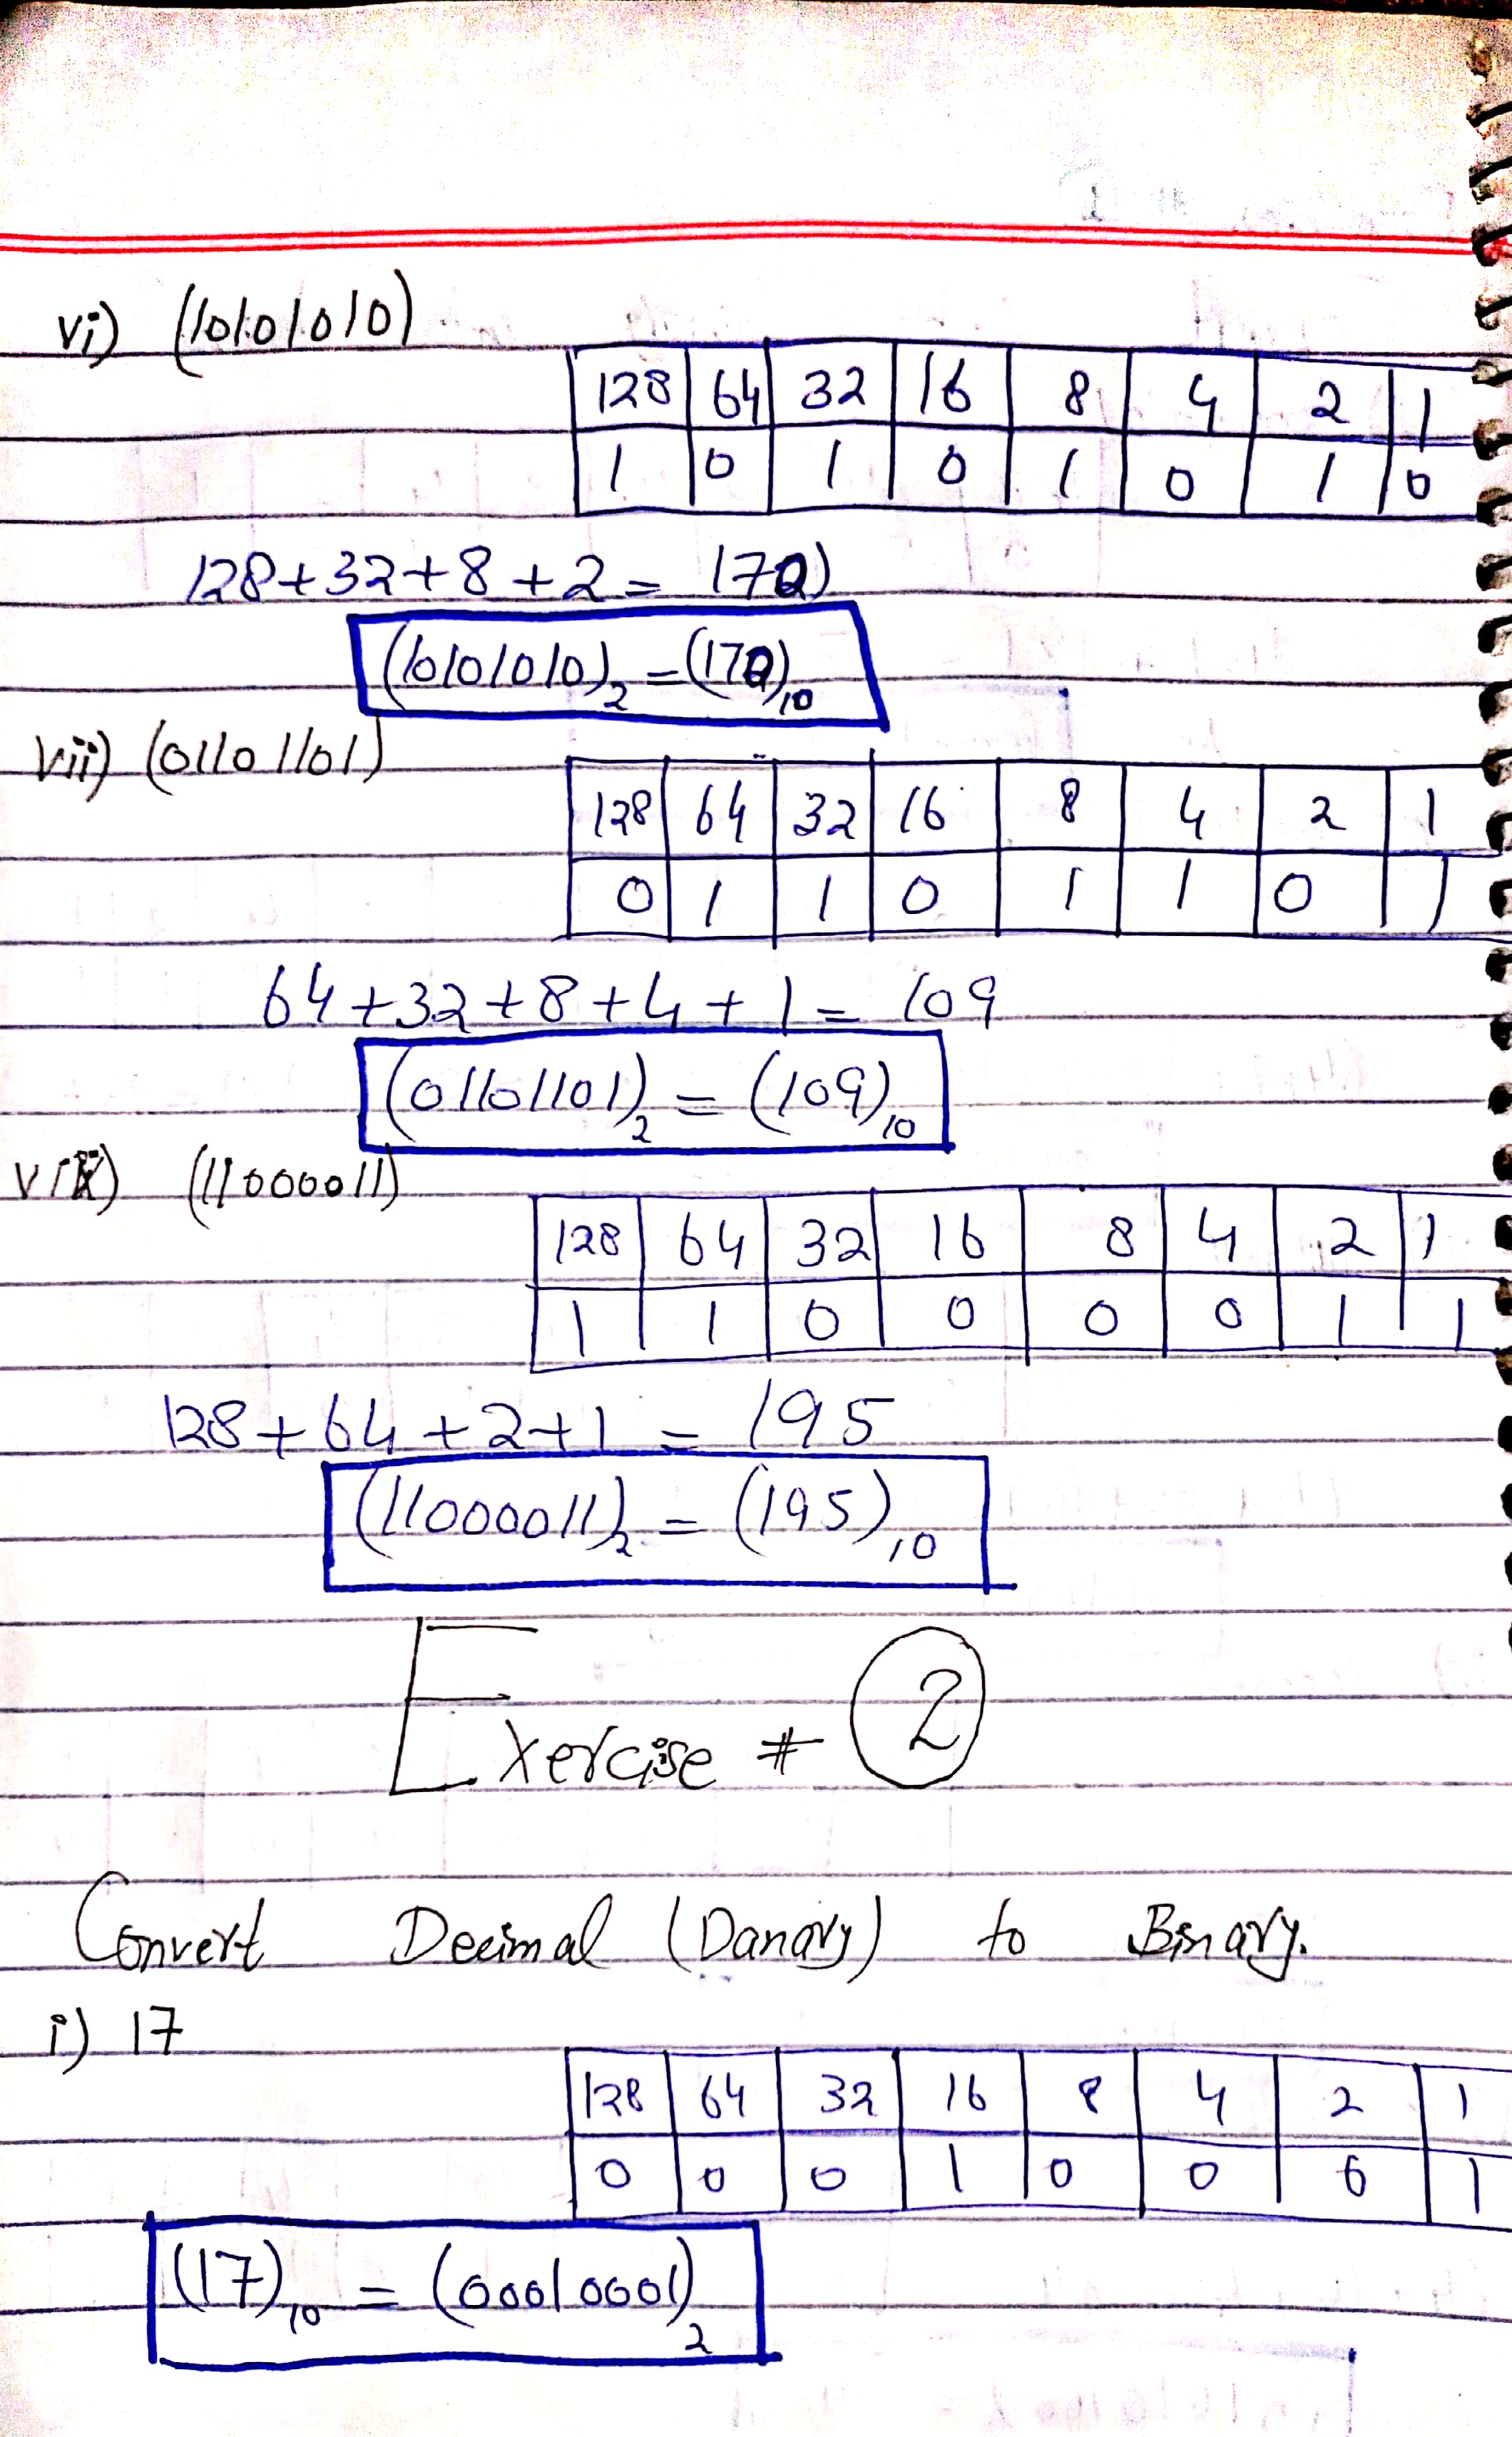 vi) (10101010)
128 64 32 16 8 4 2 1
1 0 1 0 1 0 1 0
128+32+8+2= 170)
(10101010)2=(170)10
vii) (01101101)
128 64 32 16 8 4 2 1
0 1 1 0 1 1 0 1
64+32+8+4+1= 109
(01101101)2 = (109)10
(11000011)
128 64 32 16 8 4 2 1
1 1 0 0 0 0 1 1
128+64+2+1 = 195
(11000011)2 = (195)10
Exercise # 2
Convert Decimal (Danary) to Binary.
i) 17
128 64 32 16 8 4 2 1
0 0 0 1 0 0 0 1
(17)10 = (00010001)2